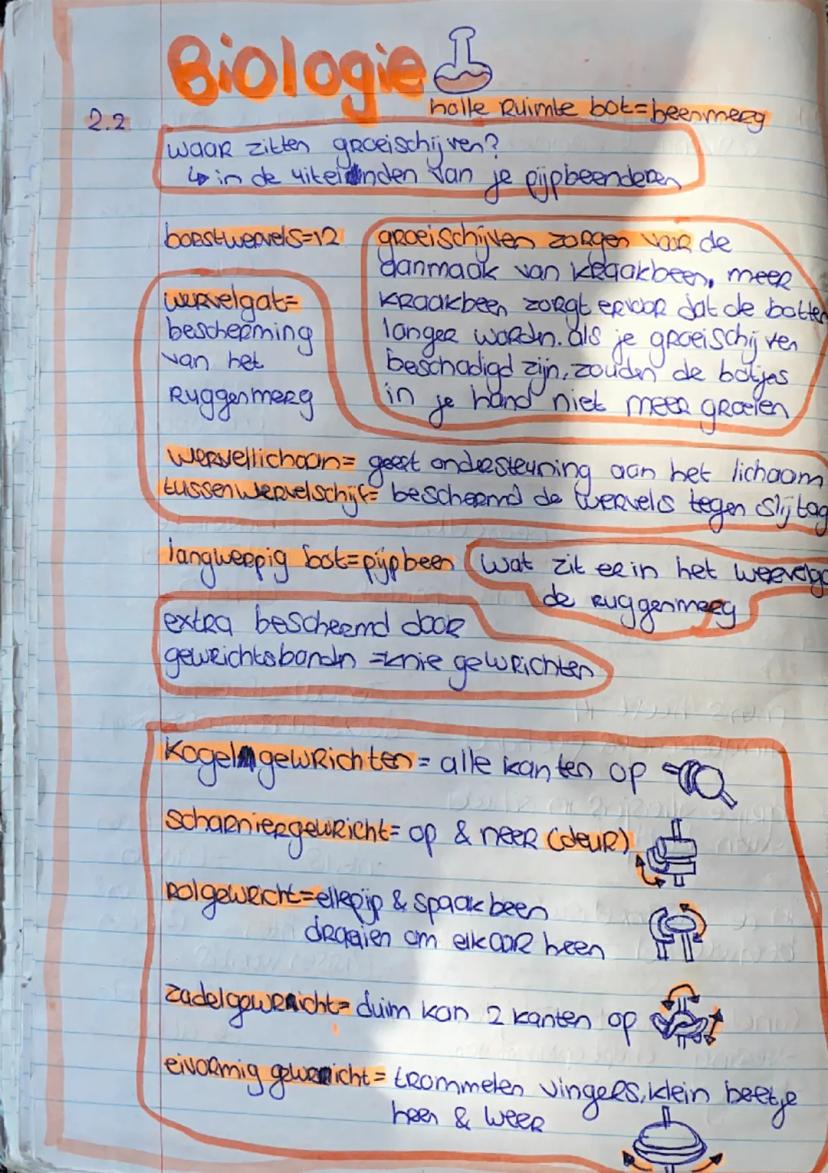 Biologie
holle Ruimte bot=beenmerg
2.2
waar zitten groeischijven?
↳ in de uiteinden van je pijpbeenderen
borstwervels=12
groeischijven zorgen voor de
aanmaak van kraakbeen, meer
kraakbeen zorgt ervoor dat de botten
langer wordn. als je groeischijven
beschadigd zijn, zouden de botjes
in je hand niet meer groeien
wervelgat=
bescherming
van het
Ruggenmerg
wervellichaam= geeft ondersteuning aan het lichaam
tussenwervelschijf= beschermd de wervels tegen slijtag
langwerpig bot=pijpbeen
wat zit er in het wervelga
de ruggenmerg
extra beschermd door
gewrichtsbandn =knie gewrichten
Kogelgewrichten= alle kanten op
scharniergewricht= op & neer (deur)
rolgewricht=ellepijp & spaakbeen
draaien om elkaar heen
zadelgewricht= duim kan 2 kanten op
eivormig gewricht= trommelen vingers, klein beetje
heen & weer